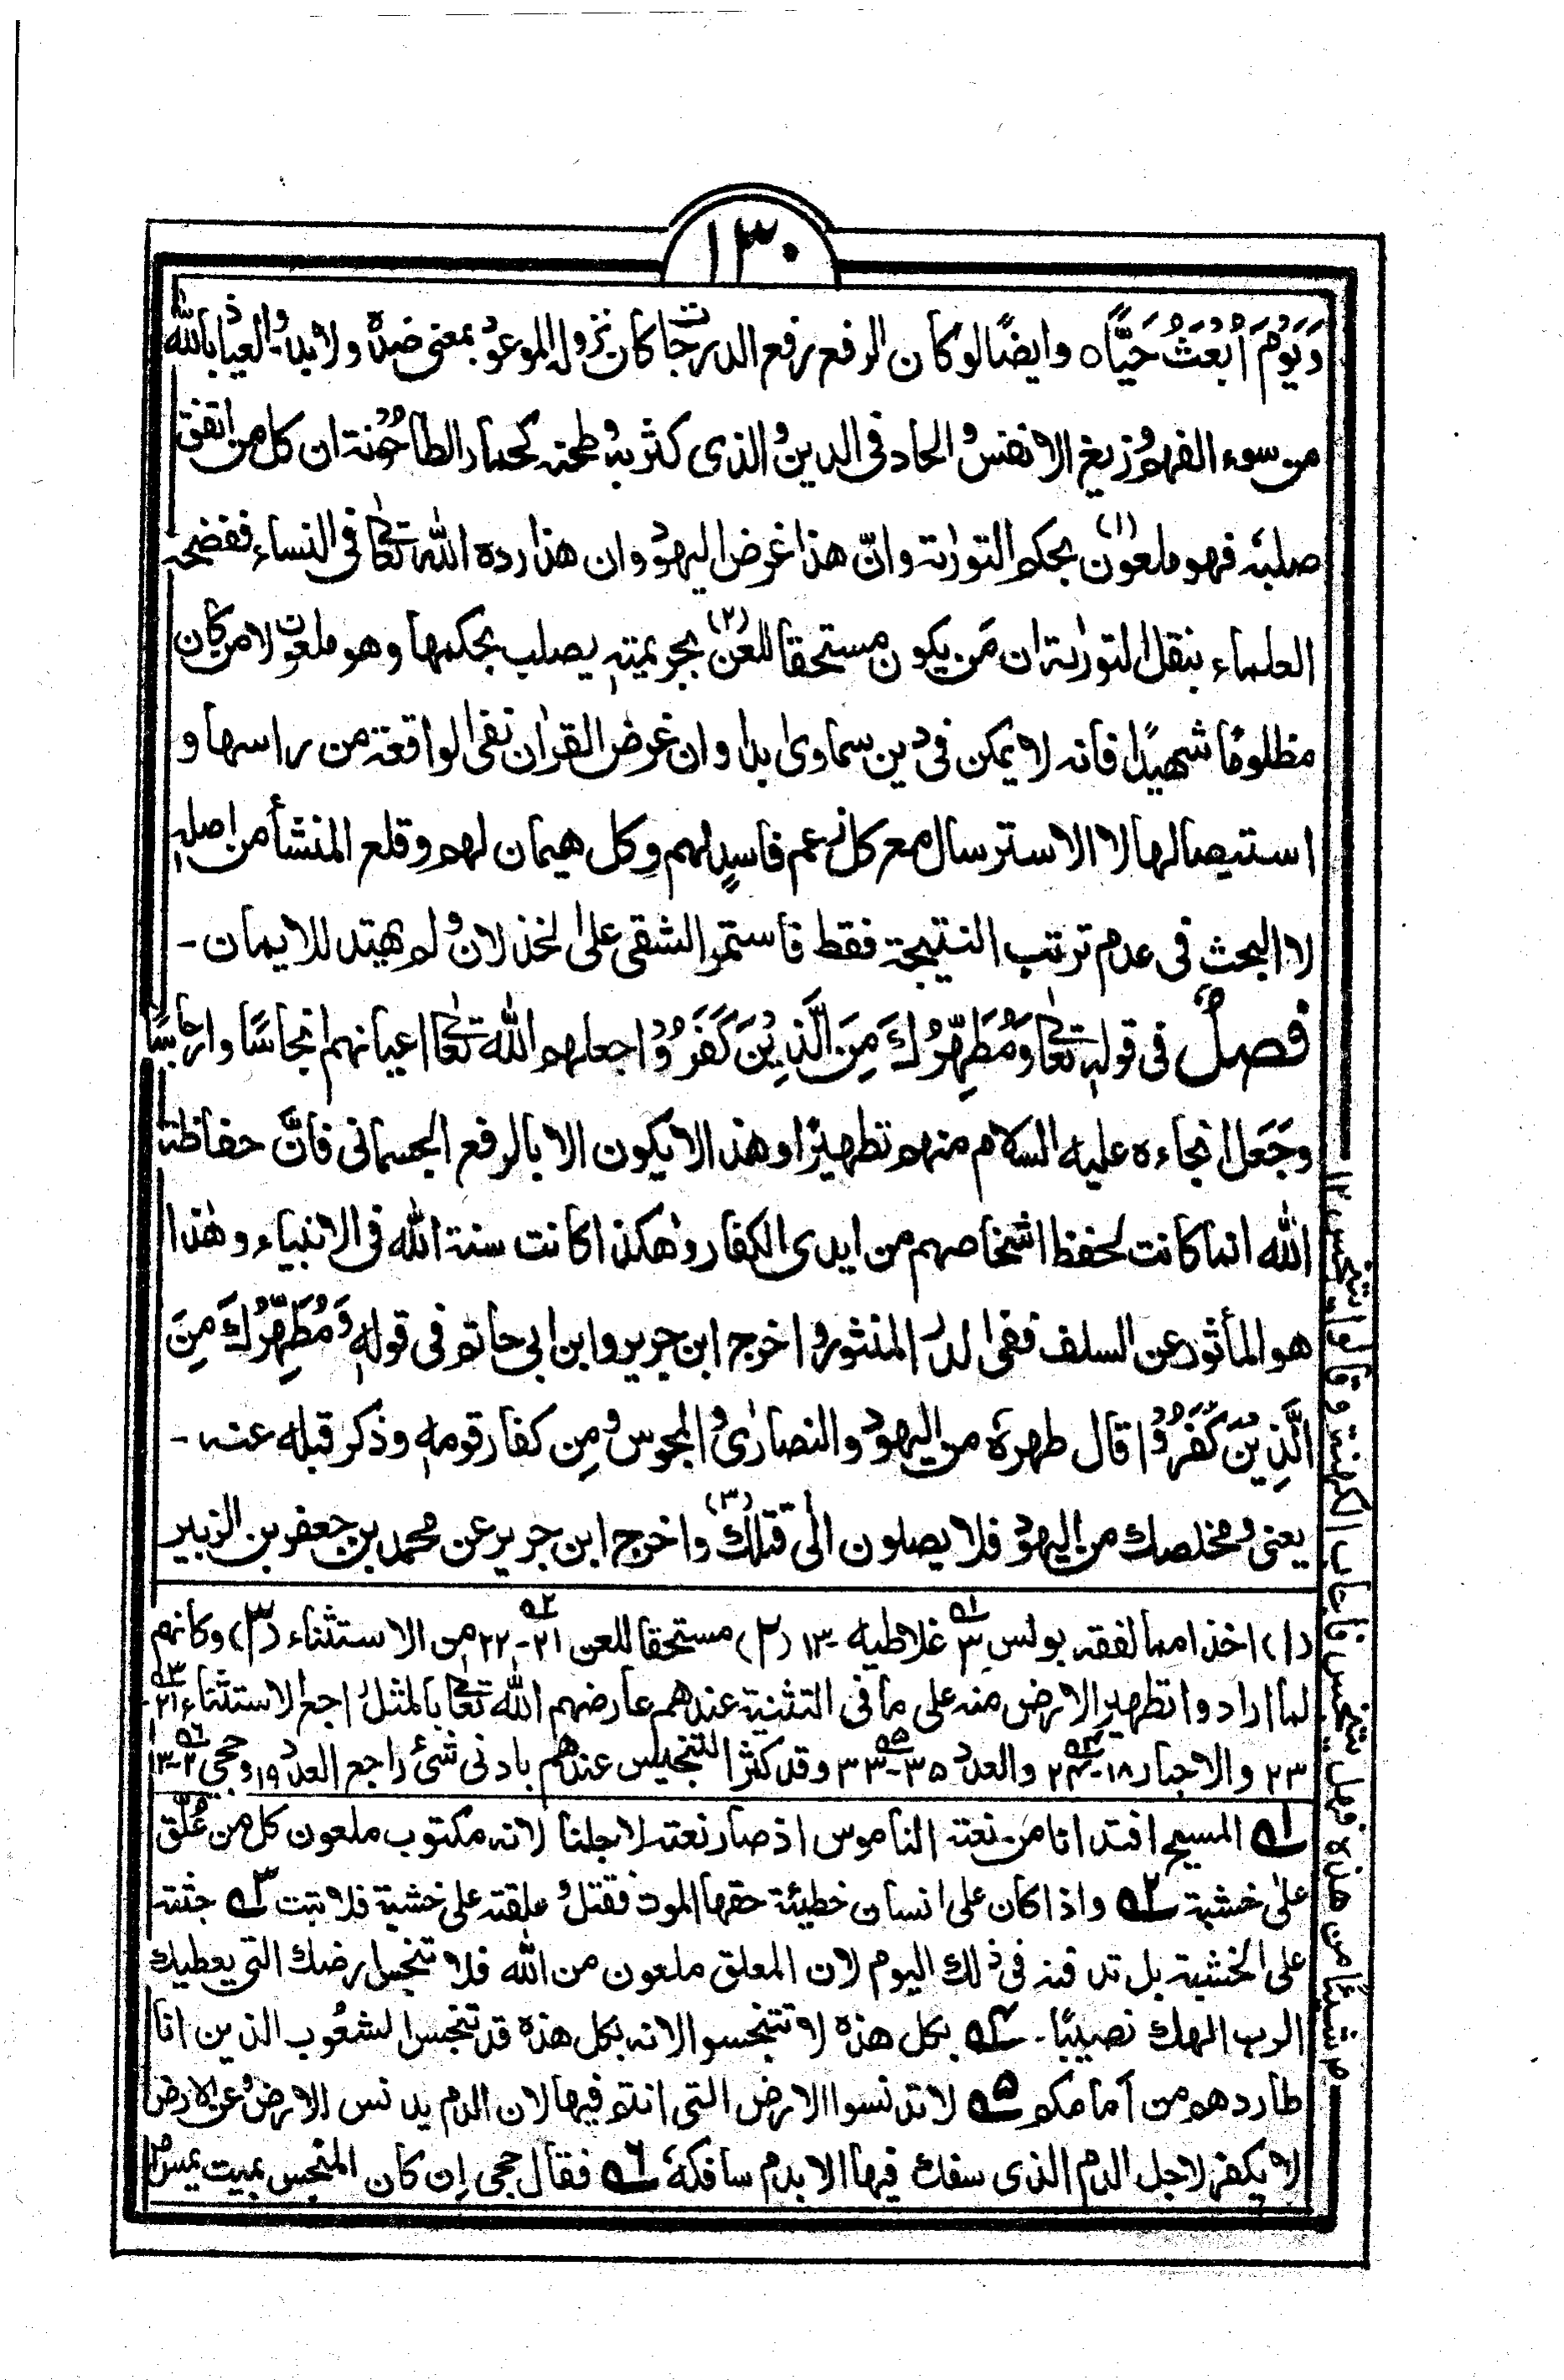 ١٣٠
وَيَوْمَ اُبْعَثُ حَيًّا٥ وايضًا لو كان الرفع رفع الدرجات كان نزوله الموعود بمعنى ضده ولا بد والعياذ بالله
من سوء الفهم وزيغ الانفس والحاد فى الدين والذى كثر به وطحنه كحمار الطاحونة ان كل من اتفق
صلبه فهو ملعون (١) بحكم التورٰىة وانّ هذا غرض اليهود وان هذا رده الله تعالىٰ فى النساء ففضحه
العلماء بنقل التورٰىة ان مَن يكون مستحقا للعن (٢) بجريمته يصلب بحكمها وهو ملعون لا من كان
مظلومًا شهيدًا فانه لا يمكن فى دين سماوى ابدا وان غرض القرآن نفى الواقعة من راسها و
استيصالها لا الاسترسال مع كل زعم فاسدٍ لهم وكل هيمان لهم وقلع المنشأ من اصله
لا البحث فى عدم ترتب النتيجة فقط فاستمر الشقى على الخذلان ولم يهتد للايمان -
فصلٌ فى قوله تعالىٰ وَمُطَهِّرُكَ مِنَ الَّذِيْنَ كَفَرُوْا جعلهم الله تعالىٰ اعيانهم انجاسًا وارجاسًا
وجَعَل انجاءه عليه السلام منهم تطهيرًا وهذا لا يكون الا بالرفع الجسمانى فانَّ حفاظة
الله انما كانت لحفظ اشخاصهم من ايدى الكفار وهٰكذا كانت سنة الله فى الانبياء وهٰذا
هو المأثور عن السلف ففى الدر المنثور واخرج ابن جرير وابن ابى حاتم فى قوله وَمُطَهِّرُكَ مِنَ
الَّذِيْنَ كَفَرُوْا قال طهره من اليهود والنصارٰى والمجوس ومِن كفار قومه وذكر قبله عنه -
يعنى ومخلصك من اليهود فلا يصلون الى قتلك (٣) واخرج ابن جرير عن محمد بن جعفر بن الزبير
(١) اخذا مما لفقه بولس ٣ غلاطيه -١٣ (٢) مستحقا للعن ٢١-٢٢ من الاستثناء (٣) وكانهم
لما ارادوا تطهير الارض منه على ما فى التثنية عندهم عارضهم الله تعالىٰ بالمثل راجع الاستثناء ٢١-
٢٣ والاحبار ١٨-٢٤ والعدد ٣٥-٣٣ وقد كثر التنجيس عندهم بادنى شئ راجع العدد ١٩ وحجى ٢-١٣
١ المسيح افتدانا من نعتة الناموس اذ صار نعته لاجلنا لانه مكتوب ملعون كل من عُلّق
علىٰ خشبة ٢ واذا كان على انسان خطيئة حقها الموت فقتل وعلقته على خشبة فلا تبت ٣ جثته
على الخشبة بل تدفنه فى ذلك اليوم لان المعلق ملعون من الله فلا تنجس ارضك التى يعطيك
الرب الهك نصيبًا- ٤ بكل هذه لا تتنجسوا لانه بكل هذه قد تنجس الشعوب الذين انا
طاردهم من أمامكم ٥ لا تدنسوا الارض التى انتم فيها لان الدم يدنس الارض وعن الارض
لا يكفر لاجل الدم الذى سفك فيها الا بدم سافكه ٦ فقال حجى اِن كان المنجس بميت يمس
شيئًا من هذه فهل يتنجس فاجاب الكهنة وقالوا يتنجس ١٢